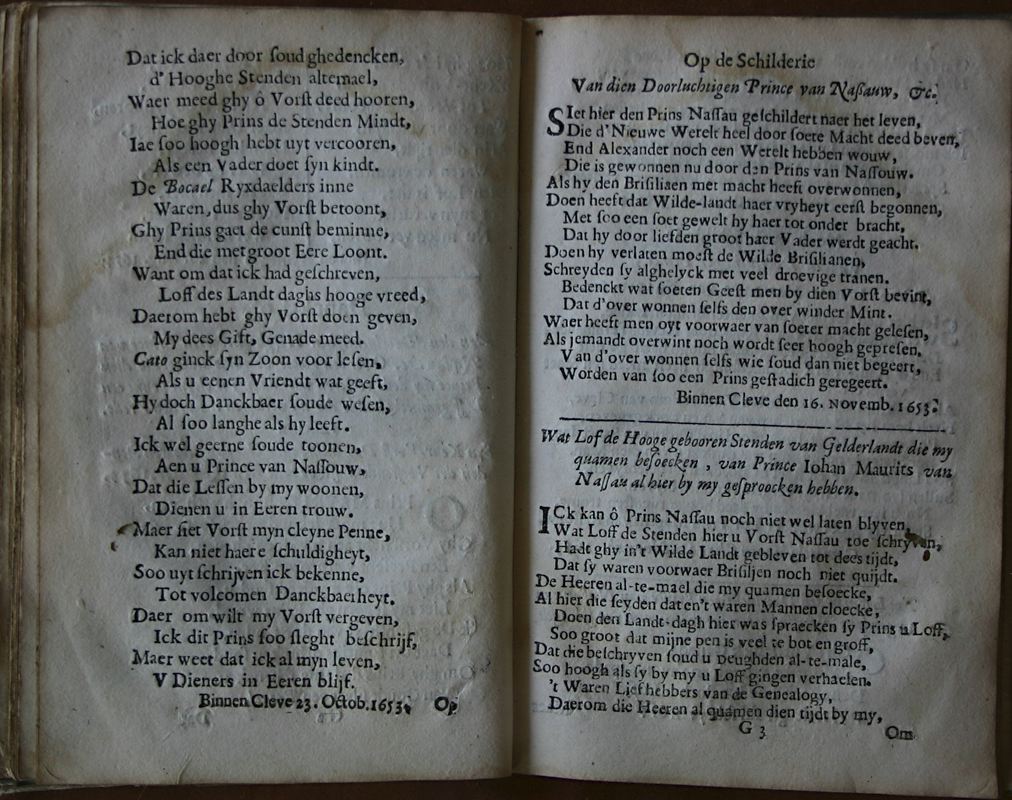 Dat ick daer door soud ghedencken,
d' Hooghe Stenden altemael,
Waer meed ghy ô Vorst deed hooren,
Hoe ghy Prins de Stenden Mindt,
Iae soo hoogh hebt uyt vercooren,
Als een Vader doet syn kindt.
De Bocael Ryxdaelders inne
Waren, dus ghy Vorst betoont,
Ghy Prins gaet de cunst beminne,
End die met groot Eere Loont.
Want om dat ick had geschreven,
Loff des Landt daghs hooge vreed,
Daerom hebt ghy Vorst doen geven,
My dees Gift, Genade meed.
Cato ginck syn Zoon voor lesen,
Als u eenen Vriendt wat geeft,
Hy doch Danckbaer soude wesen,
Al soo langhe als hy leeft.
Ick wel geerne soude toonen,
Aen u Prince van Nassouw,
Dat die Lessen by my woonen,
Dienen u in Eeren trouw.
Maer siet Vorst myn cleyne Penne,
Kan niet haere schuldigheyt,
Soo uyt schrijven ick bekenne,
Tot volcomen Danckbaerheyt.
Daer om wilt my Vorst vergeven,
Ick dit Prins soo sleght beschrijf,
Maer weet dat ick al myn leven,
V Dieners in Eeren blijf.
Binnen Cleve 23. Octob. 1653. Op
Op de Schilderie
Van dien Doorluchtigen Prince van Naßauw, &c.
SIet hier den Prins Nassau geschildert naer het leven,
Die d'Nieuwe Werelt heel door soete Macht deed beven,
End Alexander noch een Werelt hebben wouw,
Die is gewonnen nu door den Prins van Nassouw.
Als hy den Brisilisen met macht heeft overwonnen,
Doen heeft dat Wilde-landt haer vryheyt eerst begonnen,
Met soo een soet gewelt hy haer tot onder bracht,
Dat hy door liefden groot haer Vader werdt geacht.
Doen hy verlaten moest de Wilde Brisilianen,
Schreyden sy alghelyck met veel droevige tranen.
Bedenckt wat soeten Geest men by dien Vorst bevint,
Dat d'over wonnen selfs den over winder Mint.
Waer heeft men oyt voorwaer van soeter macht gelesen,
Als jemandt overwint noch wordt seer hoogh gepresen,
Van d'over wonnen selfs wie soud dan niet begeert,
Worden van soo een Prins gestadich geregeert.
Binnen Cleve den 16. Novemb. 1653.
Wat Lof de Hooge gebooren Stenden van Gelderlandt die my
quamen besoecken, van Prince Iohan Maurits van
Nassau al hier by my gesproocken hebben.
ICk kan ô Prins Nassau noch niet wel laten blyven,
Wat Loff de Stenden hier u Vorst Nassau toe schryven,
Hadt ghy in't Wilde Landt gebleven tot dees tijdt,
Dat sy waren voorwaer Brisiljen noch niet quijdt.
De Heeren al-te-mael die my quamen besoecke,
Al hier die seyden dat en't waren Mannen cloecke,
Doen den Landt-dagh hier was spraecken sy Prins u Loff,
Soo groot dat mijne pen is veel te bot en groff,
Dat die beschryven soud u Deughden al-te-male,
Soo hoogh als sy by my u Loff gingen verhaelen.
't Waren Liefhebbers van de Genealogy,
Daerom die Heeren al quamen dien tijdt by my,
G 3 Om